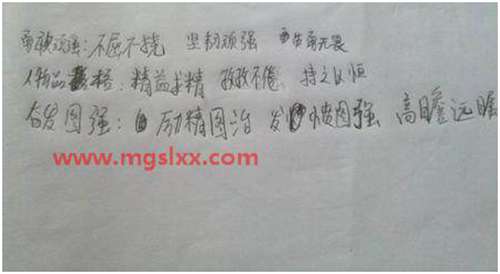 勇敢顽强：不屈不挠 坚韧顽强 勇者无畏
人物品格：精益求精 孜孜不倦 持之以恒
奋发图强：励精图治 发愤图强 高瞻远瞩
www.mgslxx.com